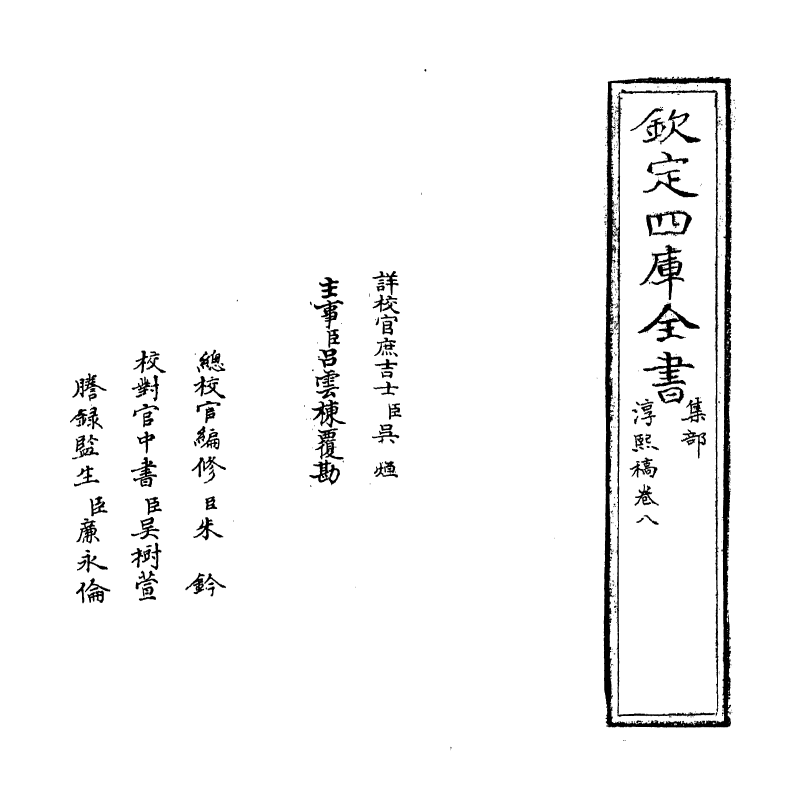 欽定四庫全書
集部
淳熙稿卷八
詳校官庶吉士臣吳烜
主事臣呂雲棟覆勘
總校官編修臣朱鈐
校對官中書臣吴樹萱
謄録監生臣廉永倫